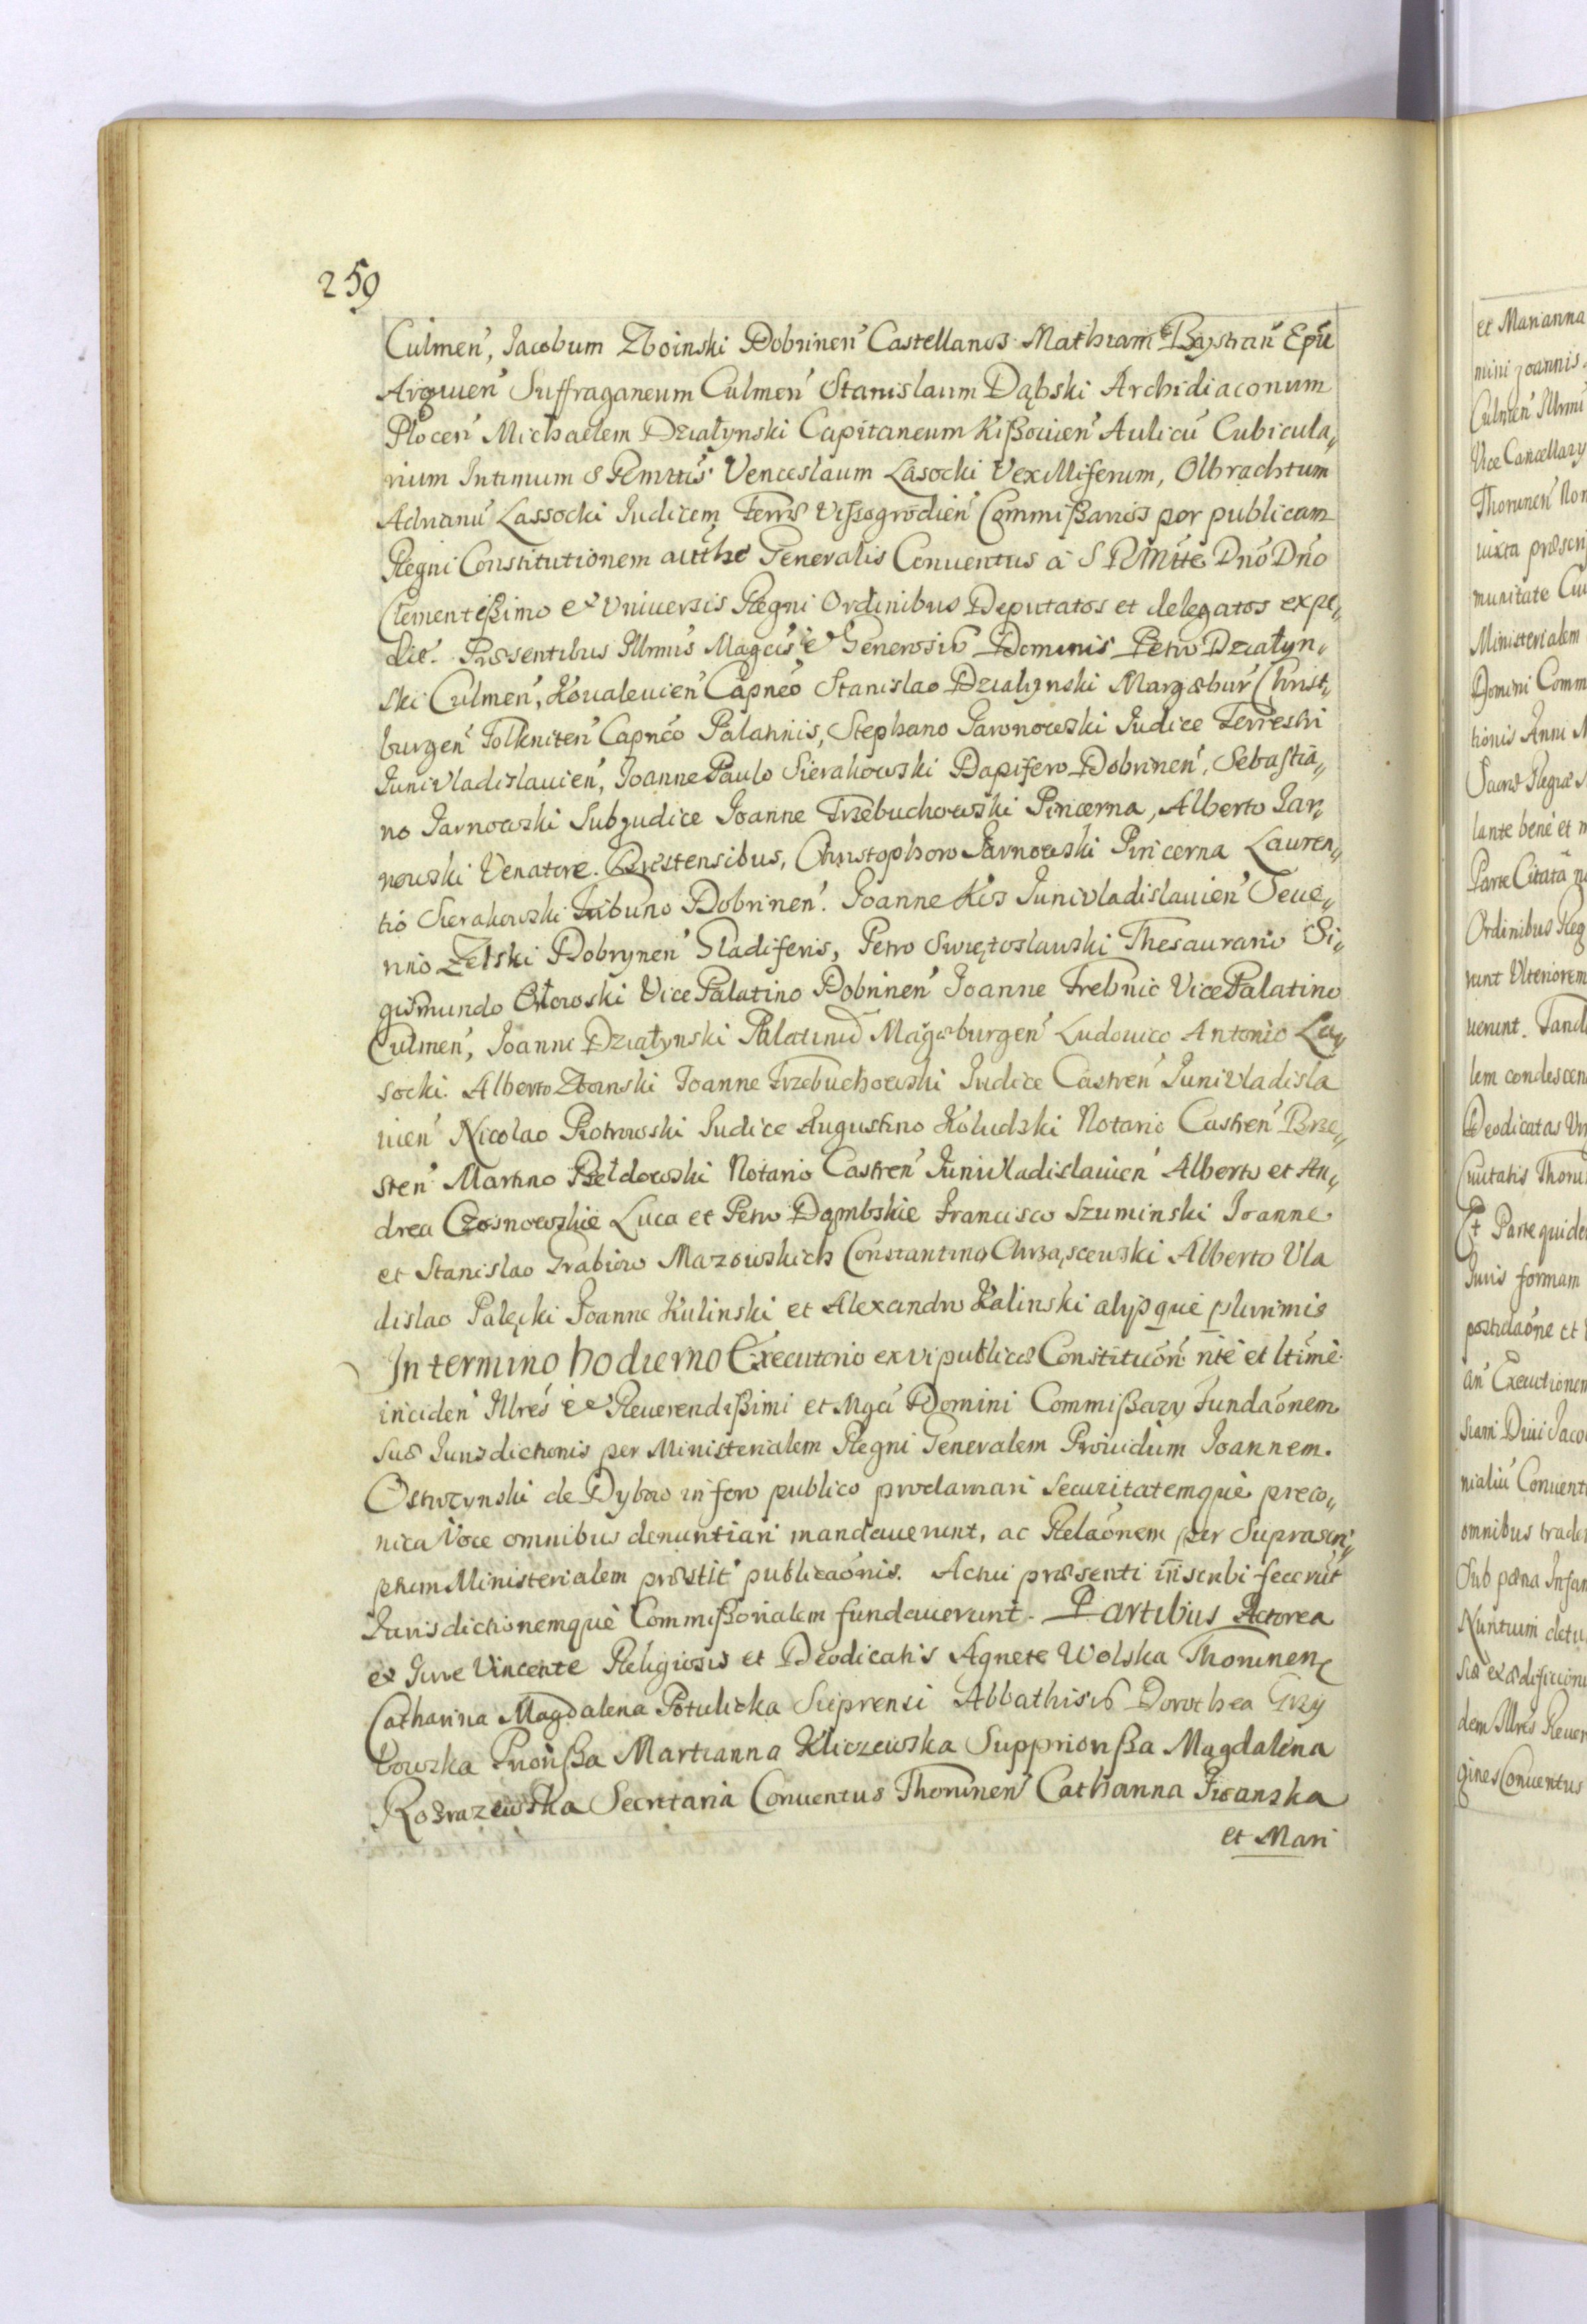 259
Culmen, Jacobum Zboinski Dobrinen Castellanos Mathiam Bystran Epu
Suffraganeum Culmen Stanislaum Dąbski Archidiaconum
Plocen Michaelem Działynski Capitaneum Kißouien Aulicu Cubicula„
rium Intimum Venceslaum Lasocki Vexilliferum, Olbrachtum
Adrianu Lassocki Judicem Terræ Vißogrodien Commißarios per publicam
Regni Constitutionem Generalis Conuentus à S Dno Dno
Clementißimo et Vniuersis Regni Ordinibus Deputatos et delegatos expe„
die. Præsentibus Illrmis Magcis et Generosis Dominis Petro Działyn„
ski Culmen, Koualeuien Capneo Stanislao Dzialynski Christ„
burgen Tolkniten Capneo Palatinis, Stephano Jarnowski Judice Terrestri
Junivladislauien, Joanne Paulo Sierakowski Dapifero Dobrinen, Sebastia„
no Jarnowski Subjudice Joanne Trzebuchowski Pincerna, Alberto Jar„
nowski Venatore. Brestensibus, Christophoro Jarnowski Pincerna Lauren„
tio Sierakowski Tribuno Dobrinen. Joanne Kos Junivladislauien Seue„
rino Zelski Dobrynen Gladiferis, Petro Swiętoslawski Thesaurario Si„
gismundo Orłowski Vice Palatino Dobrinen Joanne Trebnic Vice Palatino
Culmen, Joanne Działynski Palatinid Magæburgen Ludouico Antonio La„
socki. Alberto Zboinski Joanne Trzebuchowski Judice Castren Junivladisla
uien Nicolao Piotrowski Judice Augustino Koludzki Notario Castren Brze„
sten Martino Bełdowski Notario Castren Junivladislauien Alberto et An„
drea Czosnowskie Luca et Petro Dąmbskie Francisco Szuminski Joanne
et Stanislao Grabiow Mazowskich Constantino Chrząscewski Alberto Vla
dislao Pałęcki Joanne Kulinski et Alexandro Kalinski alijsque plurimis
In termino hodierno Executorio ex vi publicæ Constituón nte et ltimé
inciden Illres et Reuerendißimi et Mgci Domini Commißary Fundaónem
suæ Jurisdictionis per Ministerialem Regni Generalem Prouidum Joannem
Ostrozynski de Dybow in foro publico proclamari Securitatemque preco„
nica Voce omnibus denuntiari mandauerunt, ac Relaónem per Suprascri„
ptum Ministerialem præstit publicaónis. Actui præsenti inscribi fecerut
Jurisdictionemque Commißorialem fundauerunt. Partibus Actorea
ex Jure Vincente Religiosis et Deodicatis Agnete Wolska Thorunen
Catharina Magdalena Potulicka Sieprensi Abbathisis Dorothea Grzy
bowska Priorißa Martianna Kliczewska Supriorißa Magdalena
Rozrazewska Secretaria Conuentus Thorunen Catharina Iwanska
et Mari
et Marianna
mini Joannis
Culmen Illrmi
Vice Cancellary
Thorunen
iuxta præsen
munitate Ciu
Ministerialem
Domini Comm
tionis Anni M
Sacræ Regiæ
lante bene et
Parte Citata
Ordinibus Reg
runt Vlteriorem
uerunt. Tand
lem condescen
Deodicatas Vir
Ciuitatis Thoru
Et Parte quide
Juris formam
postulaóne et
an Executionem
siam Diui Jaco
nialiu Conuent
omnibus trade
Sub pæna Infam
Nuntium
dem Illres Reuer
gines Conuentus